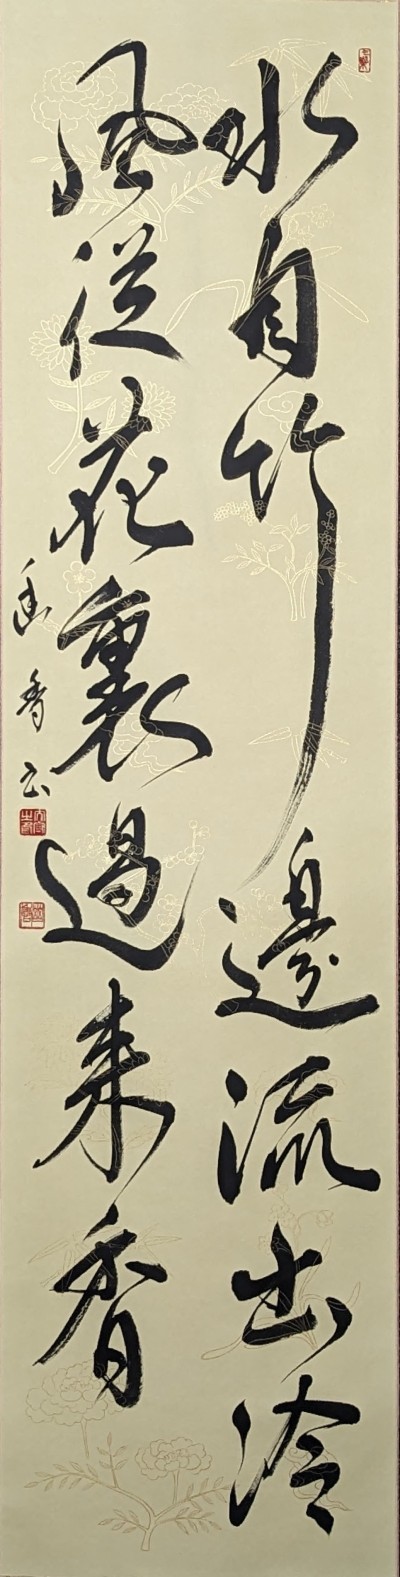 水自竹邊流出冷
風從花裏過来香
香書